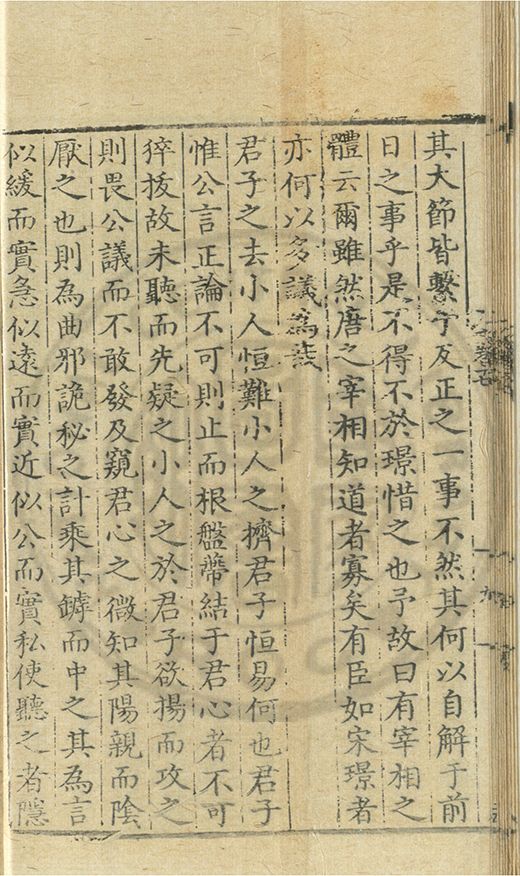 其大節皆繫于反正之一事不然其何以自解于前
日之事乎是不得不於璟惜之也予故曰有宰相之
體云爾雖然唐之宰相知道者寡矣有臣如宋璟者
亦何以多議為哉
君子之去小人恒難小人之擠君子恒易何也君子
惟公言正論不可則止而根盤蔕結于君心者不可
猝拔故未聽而先疑之小人之於君子欲揚而攻之
則畏公議而不敢發及窺君心之微知其陽親而陰
厭之也則為曲邪詭秘之計乘其罅而中之其為言
似緩而實急似遠而實近似公而實私使聽之者隱